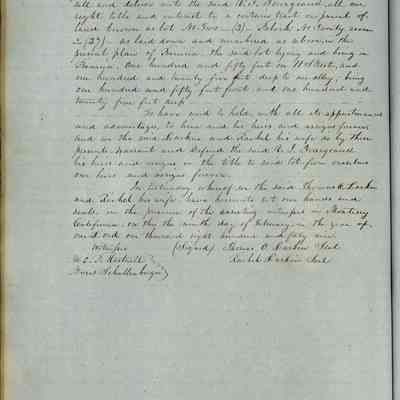 sell and deliver unto the said W. S. all our
right title and interest to a certain tract or parcel of
land known as Lot No Two (2) Block No Twenty seven
(27) as laid down and numbered as above in the
general plan of Benicia, the said lot lying and being in
Benicia, One hundred and fifty feet on West, and
one hundred and twenty five feet deep to an alley, being
one hundred and fifty feet front, and one hundred and
twenty five feet deep
To have and to hold, with all its appurtenances
and advantages to him and his heirs and assigns forever
and we the said Larkin and Rachel his wife do by these
presents warrant and defend the said
his heirs and assigns in the title to said lot from ourselves
our heirs and assigns forever.
In testimony whereof we the said Thomas O. Larkin
and Rachel his wife have hereunto set our hands and
seals, in the presence of the assisting witnesses in Monterey
California, on this the ninth day of February in the year of
our Lord one thousand eight hundred and forty nine
Witnesses (Signed) Thomas O. Larkin Seal
W. E. P. Hartnell Rachel Larkin Seal
Moses Schallenberger